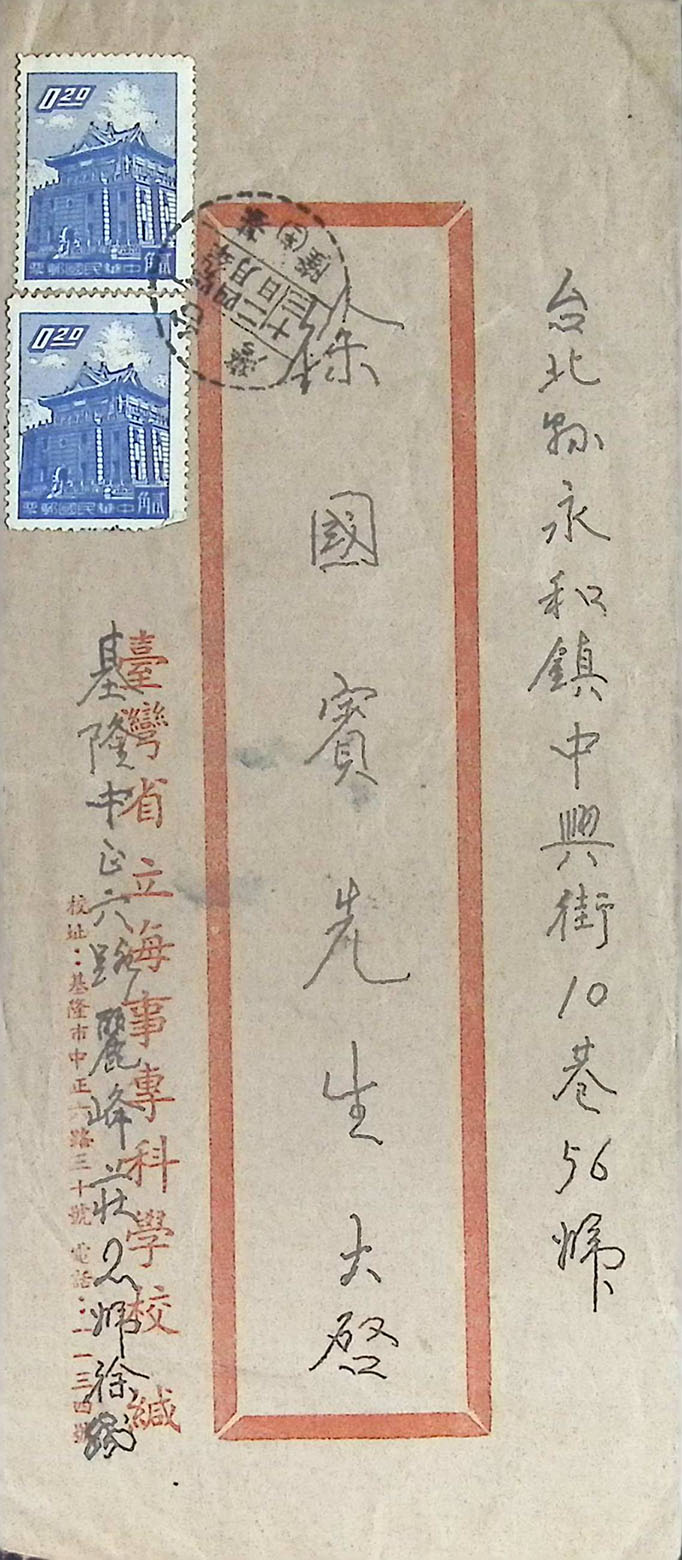 台北縣永和鎮中興街10巷56號
徐國賓先生大啓
臺灣省立海事專科學校緘
基隆中正六路麗峰莊2號徐緘
校址：基隆市中正六路三十號 電話：一一三四號
0.20
貳角 中華民國郵票
0.20
貳角 中華民國郵票
基隆